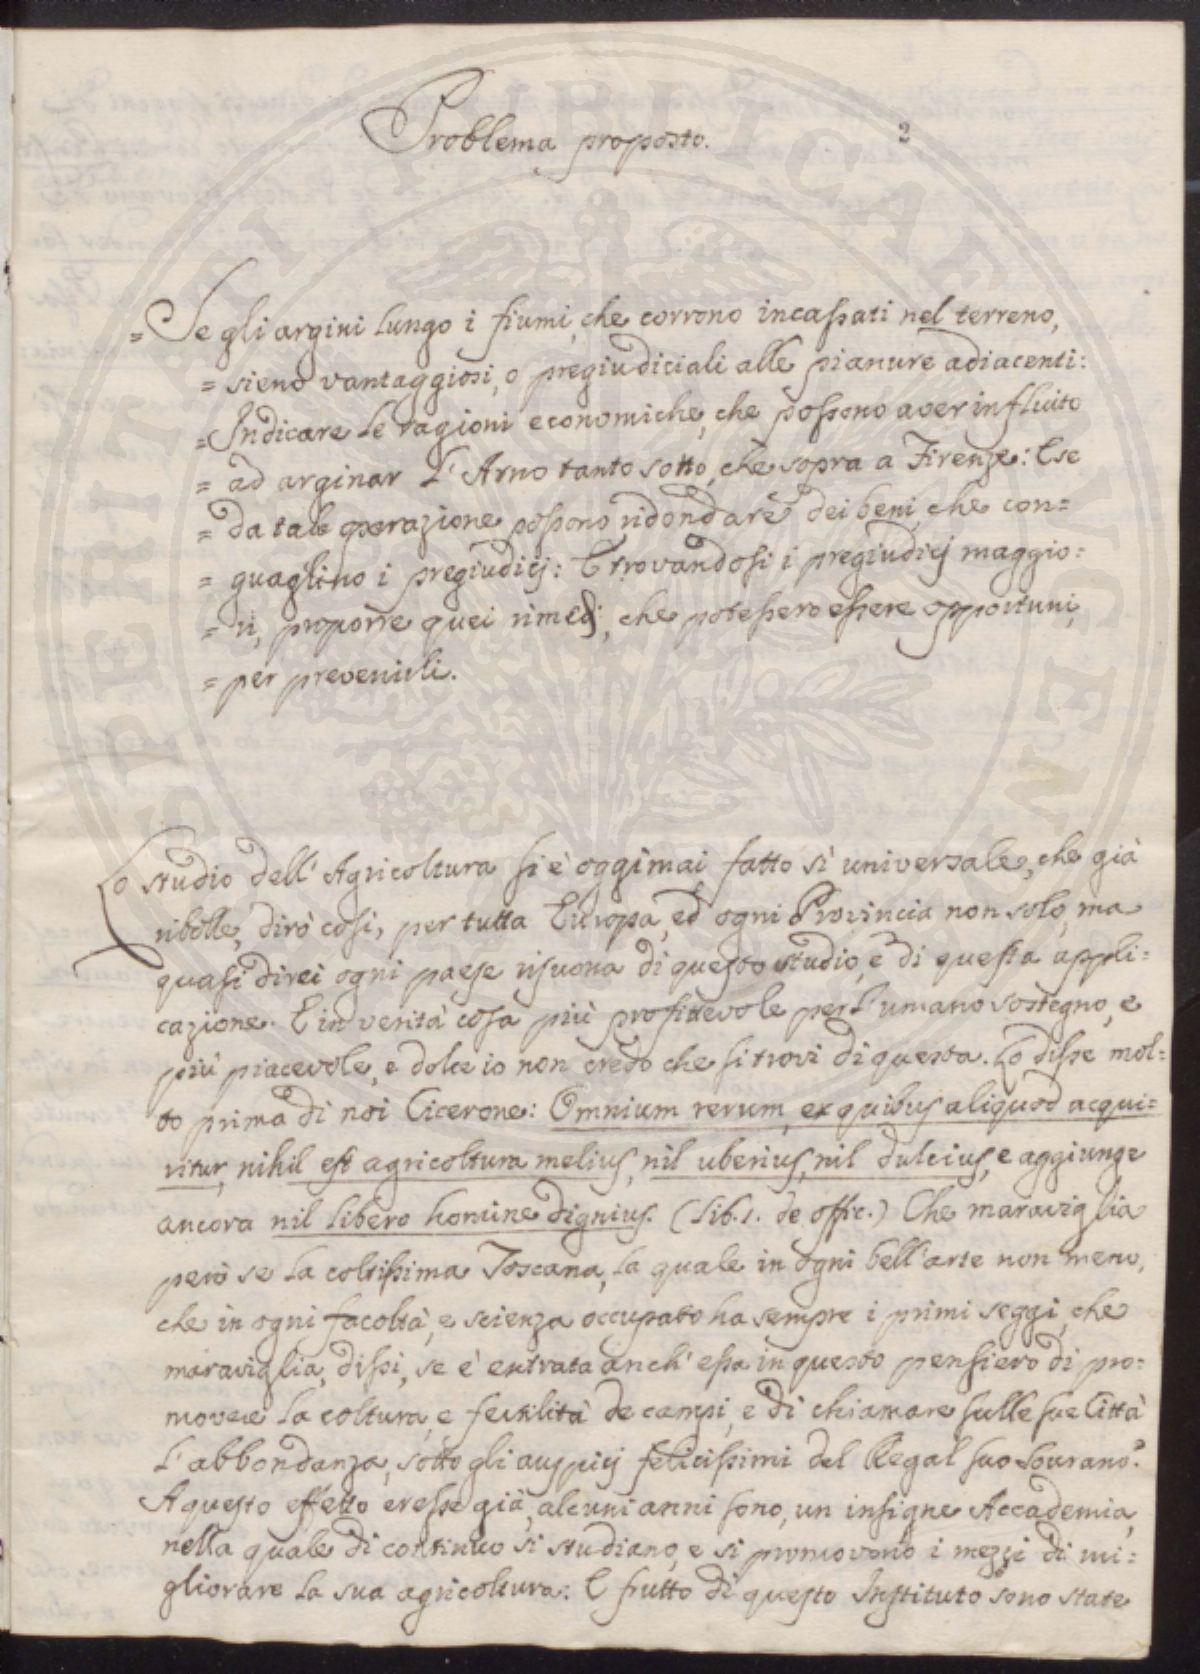 Problema proposto.
2
= Se gli argini lungo i fiumi, che corrono incassati nel terreno,
= sieno vantaggiosi, o pregiudiciali alle pianure adiacenti:
= Indicare le ragioni economiche, che possono aver influito
= ad arginar l'Arno tanto sotto, che sopra a Firenze: E se
= da tale operazione possono ridondare dei beni, che con=
= guaglino i pregiudicj: E trovandosi i pregiudicj maggio=
= ri, proporre quei rimedj, che potessero essere opportuni,
= per prevenirli.
Lo studio dell'Agricoltura si è oggimai fatto sì universale, che già
ribolle, dirò così, per tutta Europa, ed ogni Provincia non solo, ma
quasi direi ogni paese risuona di questo studio, e di questa appli=
cazione. E in verità cosa più profittevole per l'umano sostegno, e
più piacevole, e dolce io non credo che si trovi di questa. Lo disse mol=
to prima di noi Cicerone: Omnium rerum, ex quibus aliquod acqui=
ritur, nihil est agricoltura melius, nil uberius, nil dulcius, e aggiunge
ancora nil libero homine dignius. (Lib. 1. de offic.) Che maraviglia
però se la coltissima Toscana, la quale in ogni bell'arte non meno,
che in ogni facoltà, e scienza occupato ha sempre i primi seggi, che
maraviglia, dissi, se è entrata anch'essa in questo pensiero di pro=
movere la coltura, e fertilità de campi, e di chiamare sulle sue Città
l'abbondanza, sotto gli auspicj felicissimi del Regal suo Sovrano?
A questo effetto eresse già, alcuni anni sono, un insigne Accademia,
nella quale di continuo si studiano, e si promovono i mezzi di mi=
gliorare la sua agricoltura: E frutto di questo Instituto sono state